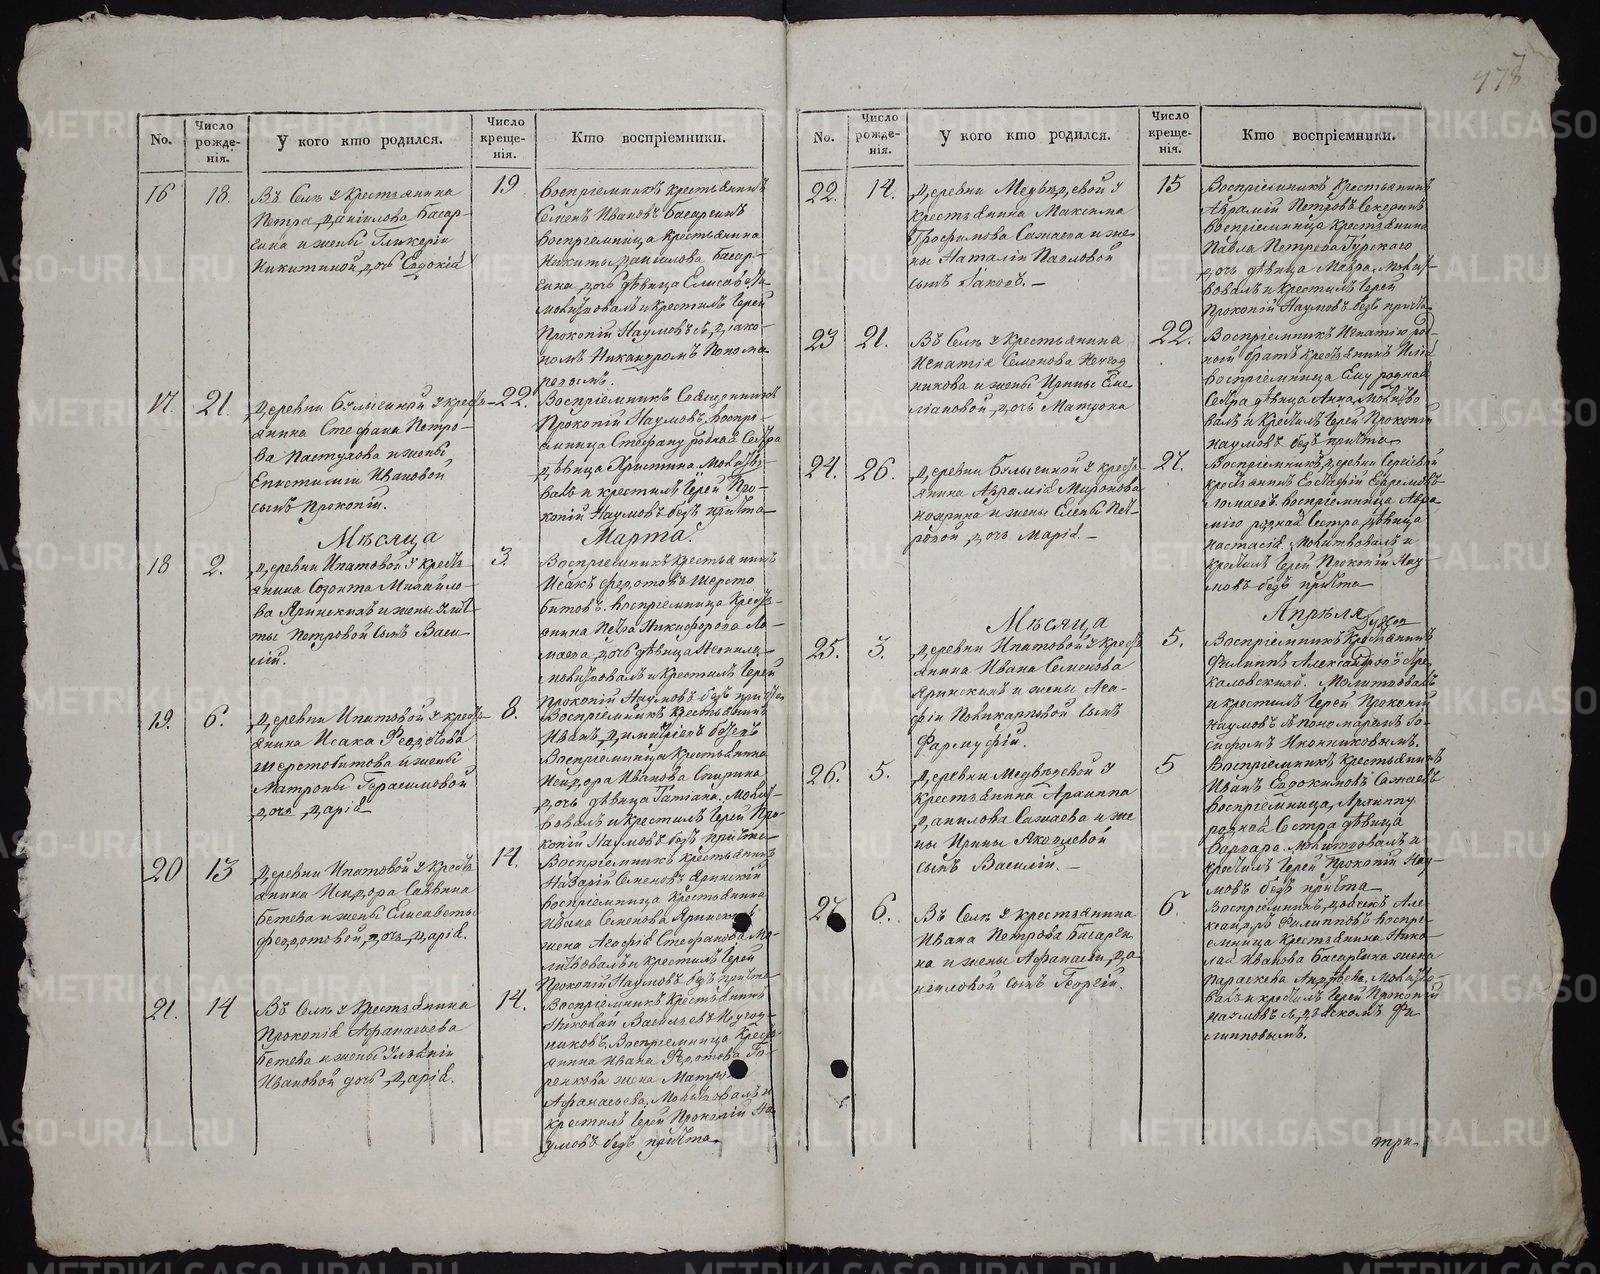 478
No.
Число рожде-нія.
У кого кто родился.
Число креще-нія.
Кто воспріемники.
16
18.
Въ Селѣ у Крестьянина
Петра Даніилова Басар-
гина и жены Гликеріи
Никитиной дочь Евдокія
19
Воспріемникъ крестьянинъ
Семенъ Ивановъ Басаргинъ
воспріемница крестьянина
Никиты Даніилова Басар-
гина дочь дѣвица Елисавета
молитвовалъ и крестилъ Іерей
Прокопій Наумовъ съ Діако-
номъ Никандромъ Понома-
ревымъ.
17.
21.
Деревни Булыгиной у кресть-
янина Стефана Петро-
ва Пастухова и жены
Епистиміи Ивановой
сынъ Прокопій.
22.
Воспріемникъ Священникъ
Прокопій Наумовъ, воспрі-
емница Стефану родная Сестра
дѣвица Христина. Молитво-
валъ и крестилъ Іерей Про-
копій Наумовъ безъ причта
Мѣсяца Марта.
18
2.
Деревни Ипатовой у кресть-
янина Созонта Михайло-
ва Яринскихъ и жены Ули-
ты Петровой сынъ Васи-
лій.
3.
Воспріемникъ крестьянинъ
Исакъ Федотовъ Шерсто
битовъ. воспріемница Кресть-
янина Петра Никифорова Ло-
маева дочь дѣвица Неонила
молитвовалъ и крестилъ Іерей
Прокопій Наумовъ безъ причта
19.
6.
Деревни Ипатовой у кресть-
янина Исака Феодотова
Шерстобитова и жены
Матроны Герасимовой
дочь Дарія
8.
Воспріемникъ Крестьянинъ
Иванъ Димитріевъ
Воспріемница Крестьянина
Исидора Иванова Спирина
дочь дѣвица Татіана. Молит-
вовалъ и Крестилъ Іерей Про-
копій Наумовъ безъ причта
20
13
Деревни Ипатовой у Кресть
янина Исидора Саввина
Бетева и жены Елисаветы
Феодотовой, дочь Дарія.
14.
Воспріемникъ крестьянинъ
Назарій Семеновъ Яринскій
воспріемница Крестьянина
Ивана Семенова Яринскихъ
жена Агафія Стефанова Мо-
литвовалъ и крестилъ Іерей
Прокопій Наумовъ безъ причта
21.
14
Въ Селѣ у Крестьянина
Прокопія Афанасьева
Бетева и жены Уліяніи
Ивановой дочь Дарія.
14.
Воспріемникъ Крестьянинъ
Николай Васильевъ Неугод-
никовъ. Воспріемница Кресть
янина Ивана Федотова Го-
ренкова жена Матрона
Афанасьева, Молитвовалъ и
крестилъ Іерей Прокопій На-
умовъ безъ причта.
No.
Число рожде-нія.
У кого кто родился.
Число креще-нія.
Кто воспріемники.
22.
14.
Деревни Медвѣдевой у
крестьянина Максима
Трофимова Сажаева и же
ны Наталіи Павловой
сынъ Іаковъ. —
15
Воспріемникъ Крестьянинъ
Аврамій Петровъ Секеринъ
воспріемница Крестьянина
Павла Петрова Гурскаго
дочь дѣвица Мавра. Молит-
вовалъ и Крестилъ Іерей
Прокопій Наумовъ безъ причта.
23
21.
Въ Селѣ у Крестьянина
Игнатія Семенова Неугод
никова и жены Ирины Еме
ліановой, дочь Матрона
22.
Воспріемникъ Игнатію род-
ный братъ крестьянинъ Илія
воспріемница Ему родная
Сестра дѣвица Анна, Молитво
валъ и Крестилъ Іерей Прокопій
Наумовъ безъ причта
24.
26.
Деревни Булыгиной у кресть
янина Аврамія Миронова
и жены Елены Пет-
ровой, дочь Марія. —
27.
Воспріемникъ деревни Сергіевой
крестьянинъ Евстафій Ефремовъ
Ломаевъ. воспріемница Авра
мію родная Сестра дѣвица
Настасія. Молитвовалъ и
крестилъ Іерей Прокопій Нау
мовъ безъ причта
Мѣсяца Апрѣля
25.
3.
Деревни Ипатовой у кресть
янина Ивана Семенова
Яринскихъ и жены Ага-
фіи Поликарповой Сынъ
Фармуфій.
5.
Воспріемникъ Крестьянинъ
Филиппъ Александровъ Пре
каловскихъ. Молитвовалъ
и крестилъ Іерей Прокопій
Наумовъ съ пономаремъ Іо-
сифомъ Иконниковымъ.
26.
5.
Деревни Медвѣдевой у
Крестьянина Архиппа
Данилова Сажаева и же
ны Ирины Яковлевой
сынъ Василій. —
5
Воспріемникъ крестьянинъ
Иванъ Евдокимовъ Сажаевъ
воспріемница, Архиппу
родная Сестра дѣвица
Варвара. Молитвовалъ и
крестилъ Іерей Прокопій Нау-
мовъ безъ причта
27
6.
Въ Селѣ у крестьянина
Ивана Петрова Басарги
на и жены Афанасіи, Да
ніиловой сынъ Георгій.
6.
Воспріемникъ, дьячекъ Але-
ксандръ Филипповъ воспрі-
емница Крестьянина Нико-
лая Иванова Басаргина жена
Параскева Андреева. Молитво-
валъ и крестилъ Іерей Прокопій
Наумовъ съ дьячкомъ Фи
липповымъ.
три-